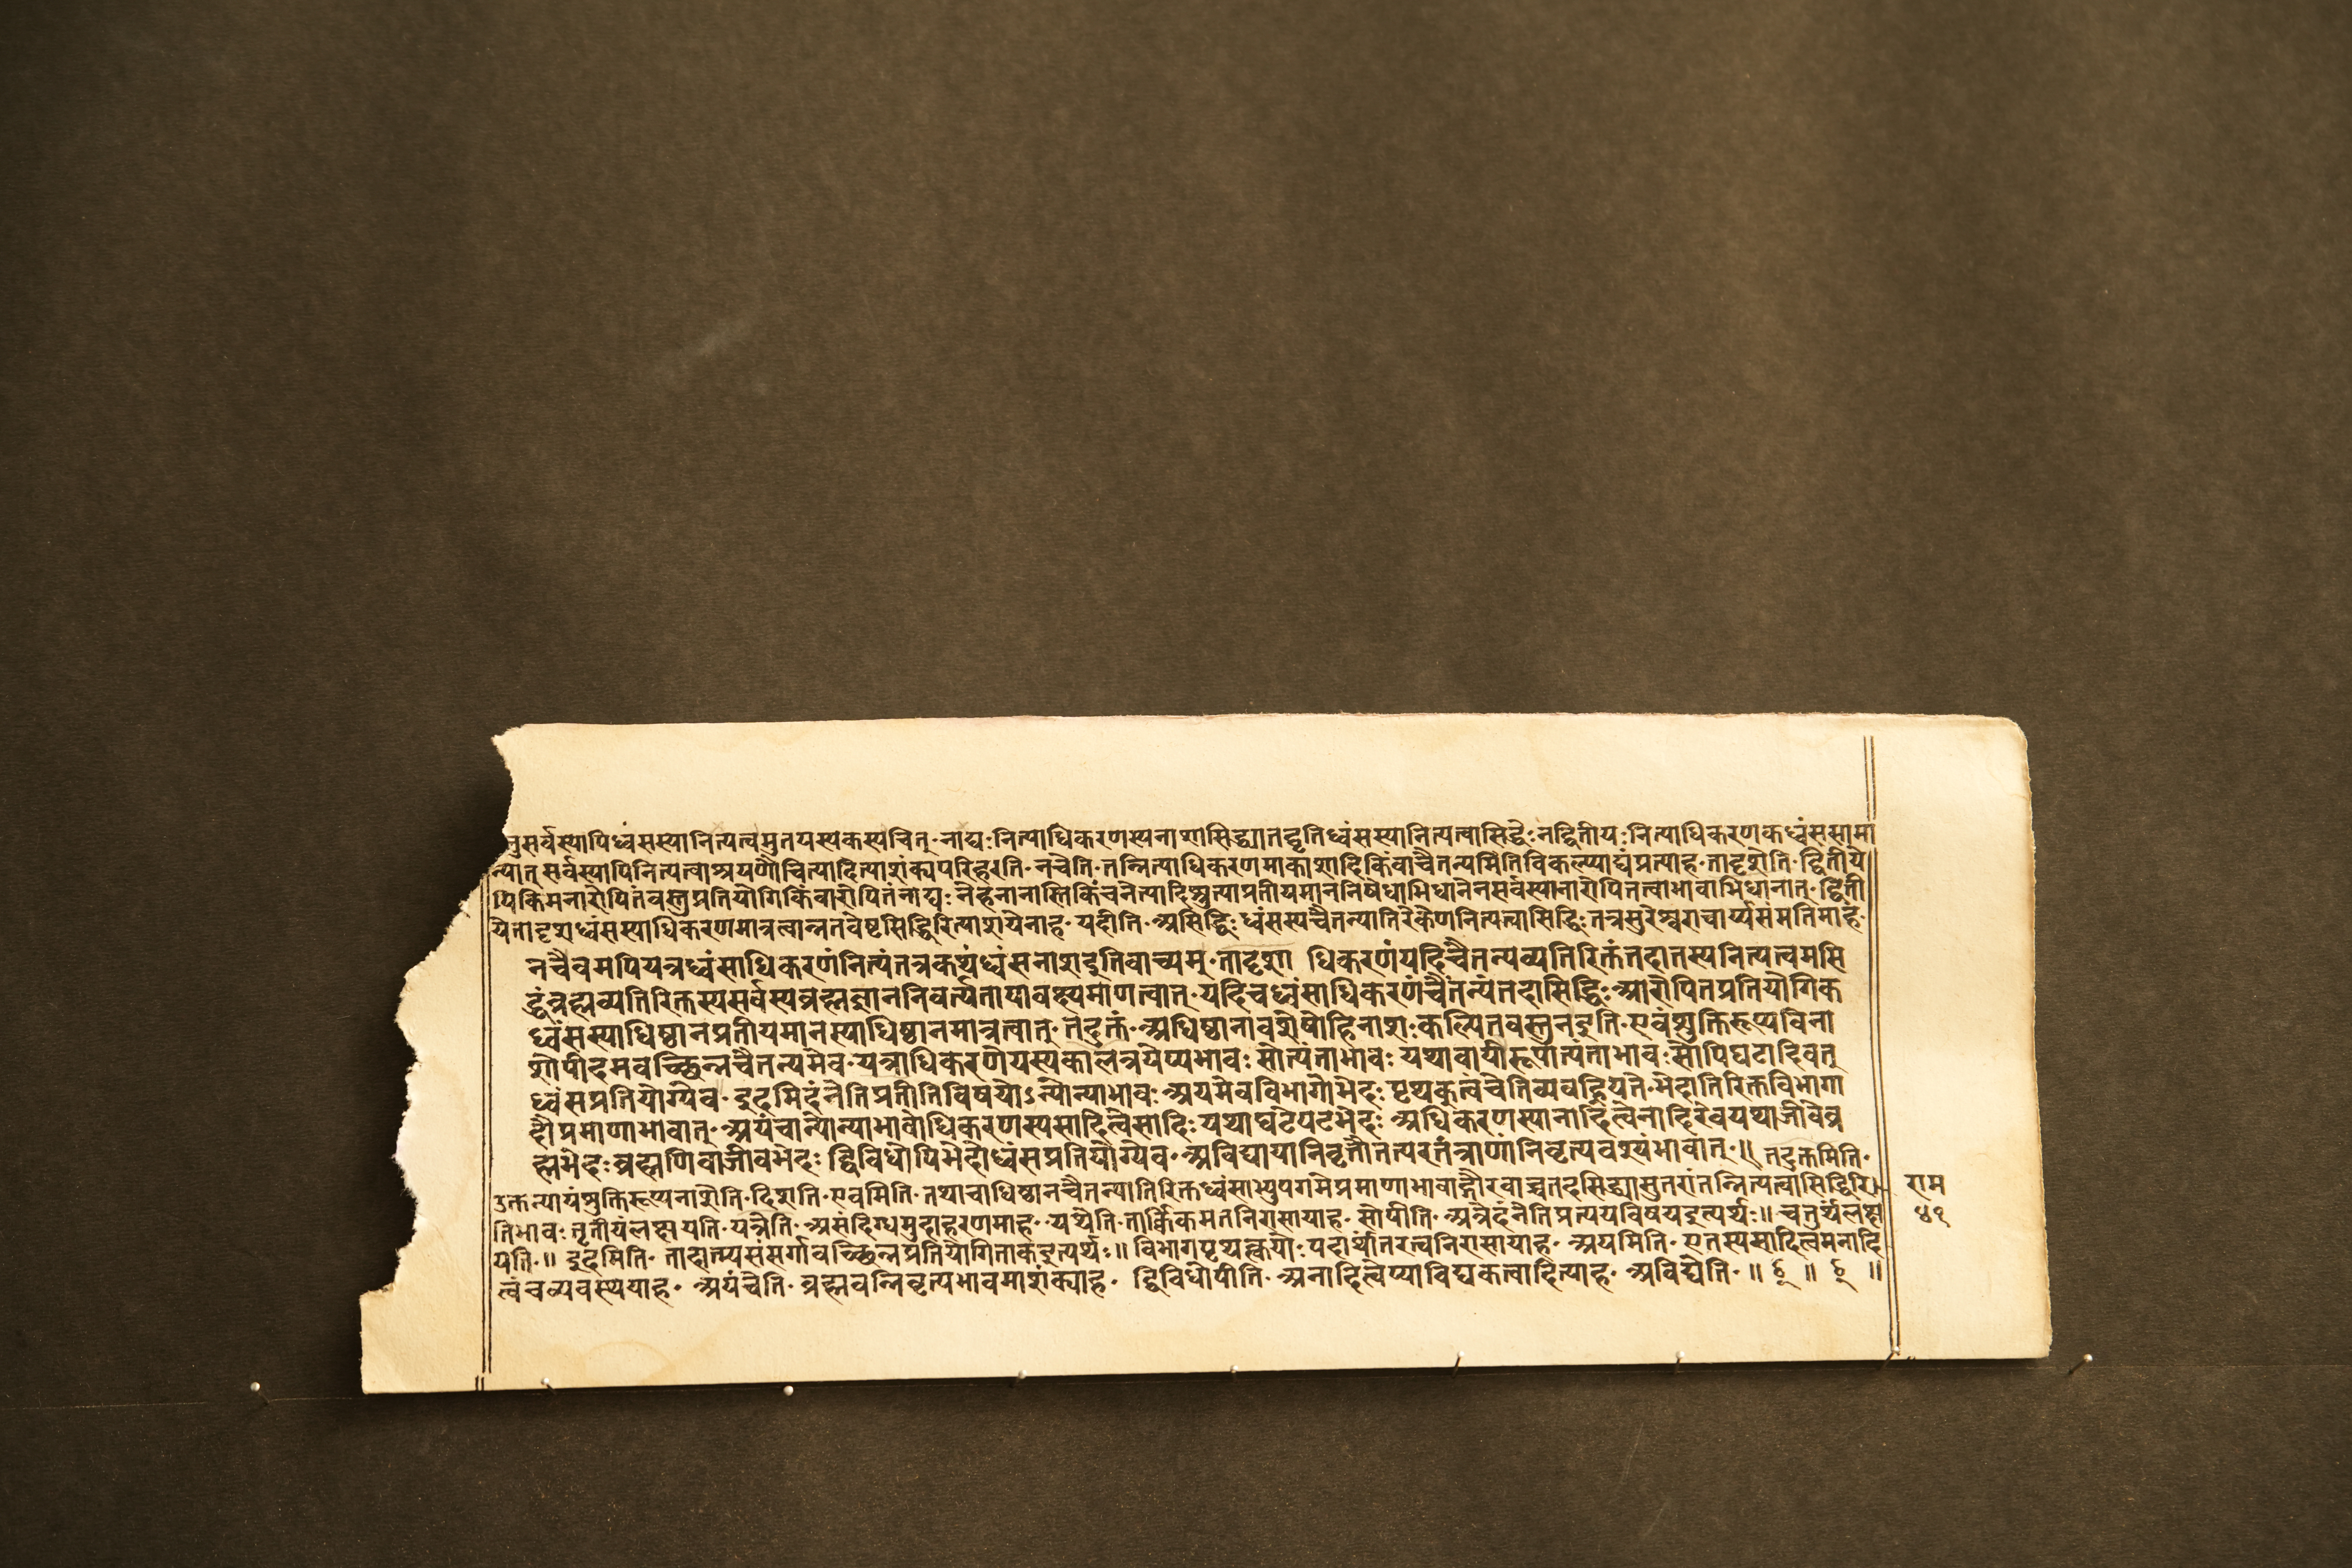 नुसर्वस्यापिध्वंसस्यानित्यत्वमुतयस्यकस्यचित्॰नाद्यःनित्याधिकरणस्यनाशासिद्ध्यातद्वृत्तिध्वंसस्यानित्यत्वासिद्धेःनद्वितीयःनित्याधिकरणकध्वंससामा
न्यात्सर्वस्यापिनित्यत्वाश्रयणौचित्यादित्याशंक्यपरिहरति॰नचेति॰तन्नित्याधिकरणमाकाशादिकिंवाचैतन्यमितिविकल्प्याद्यंप्रत्याह॰तादृशेति॰द्वितीये
पिकिमनारोपितंवस्तुप्रतियोगिकिंवारोपितंनाद्यःनेहनानास्तिकिंचनेत्यादिश्रुत्याप्रतीयमाननिषेधाभिधानेनसर्वस्यानारोपितत्वाभावाभिधानात्॰द्विती
येतादृशध्वंसस्याधिकरणमात्रत्वान्नतवेष्टसिद्धिरित्याशयेनाह॰यदीति॰असिद्धिःध्वंसस्यचैतन्यातिरेकेणनित्यत्वासिद्धिःतत्रसुरेश्वराचार्य्यसंमतिमाह॰
नचैवमपियत्रध्वंसाधिकरणंनित्यंतत्रकथंध्वंसनाशइतिवाच्यम्॰तादृशा धिकरणंयदिचैतन्यव्यतिरिक्तंतदातस्यनित्यत्वमसि
द्धंब्रह्मव्यतिरिक्तस्यसर्वस्यब्रह्मज्ञाननिवर्त्यतायावक्ष्यमाणत्वात्॰यदिचध्वंसाधिकरणंचैतन्यंतदासिद्धिः॰आरोपितप्रतियोगिक
ध्वंसस्याधिष्ठानप्रतीयमानस्याधिष्ठानमात्रत्वात्॰तदुक्तं॰अधिष्ठानावशेषोहिनाशःकल्पितवस्तुनइति॰एवंशुक्तिरूप्यविना
शोपीदमवच्छिन्नचैतन्यमेव॰यत्राधिकरणेयस्यकालत्रयेप्यभावः सोत्यंताभावः यथावायौरूपात्यंताभावःसोपिघटादिवत्
ध्वंसप्रतियोग्येव॰इदमिदंनेतिप्रतीतिविषयोऽन्योन्याभावः॰अयमेवविभागोभेदः पृथक्त्वंचेतिव्यवह्रियते॰भेदातिरिक्तविभागा
दौप्रमाणाभावात्॰अयंचान्योन्याभावोधिकरणस्यसादित्वेसादिः॰यथाघटेपटभेदः अधिकरणस्यानादित्वेनादिरेवयथाजीवेब्र
ह्मभेदःब्रह्मणिवाजीवभेदः द्विविधोपिभेदोध्वंसप्रतियोग्येव॰अविद्यायानिवृत्तौतत्परतंत्राणांनिवृत्यवश्यंभावात्॰॥ तदुक्तमिति॰
उक्तन्यायंशुक्तिरूप्यनाशेति॰दिशति॰एवमिति॰तथाचाधिष्ठानचैतन्यातिरिक्तध्वंसाभ्युपगमेप्रमाणाभावाद्गौरवाच्चतदसिद्ध्यासुतरांतन्नित्यत्वासिद्धिरि
तिभावः॰तृतीयंलक्षयति॰यत्रेति॰असंदिग्धमुदाहरणमाह॰यथेति॰तार्किकमतनिरासायाह॰सोपीति॰अत्रेदंनेतिप्रत्ययविषयइत्यर्थः॥चतुर्थंलक्ष
यति॰॥ इदमिति॰ तादात्म्यसंसर्गावच्छिन्नप्रतियोगिताकइत्यर्थः॥विभागपृथक्त्कयोःपदार्थांतरत्वनिरासायाह॰ अयमिति॰एतस्यसादित्वमनादि
त्वंचव्यवस्थयाह॰ अयंचेति॰ ब्रह्मवन्निवृत्यभावमाशंक्याह॰ द्विविधोपीति॰अनादित्वेप्याविद्यकत्वादित्याह॰ अविद्येति॰॥ छ ॥ छ ॥
राम
४१